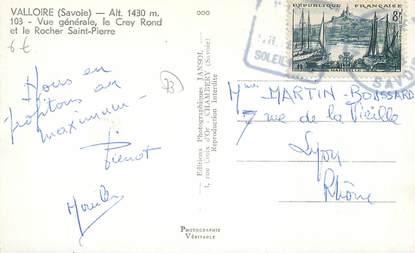 VALLOIRE (Savoie) — Alt. 1430 m.
103 - Vue générale, le Crey Rond
et le Rocher Saint-Pierre
6€
Nous en
profitons au
maximum
Pienot
B
Editions Photographiques JANSOL
1, rue Croix d'Or - CHAMBERY (Savoie)
Reproduction Interdite
PHOTOGRAPHIE
VÉRITABLE
RÉPUBLIQUE FRANÇAISE
8F
MARSEILLE
SOLEIL
SAVOIE
Mme MARTIN-BONSSARD
7 rue de la Vieille
Lyon
Rhône